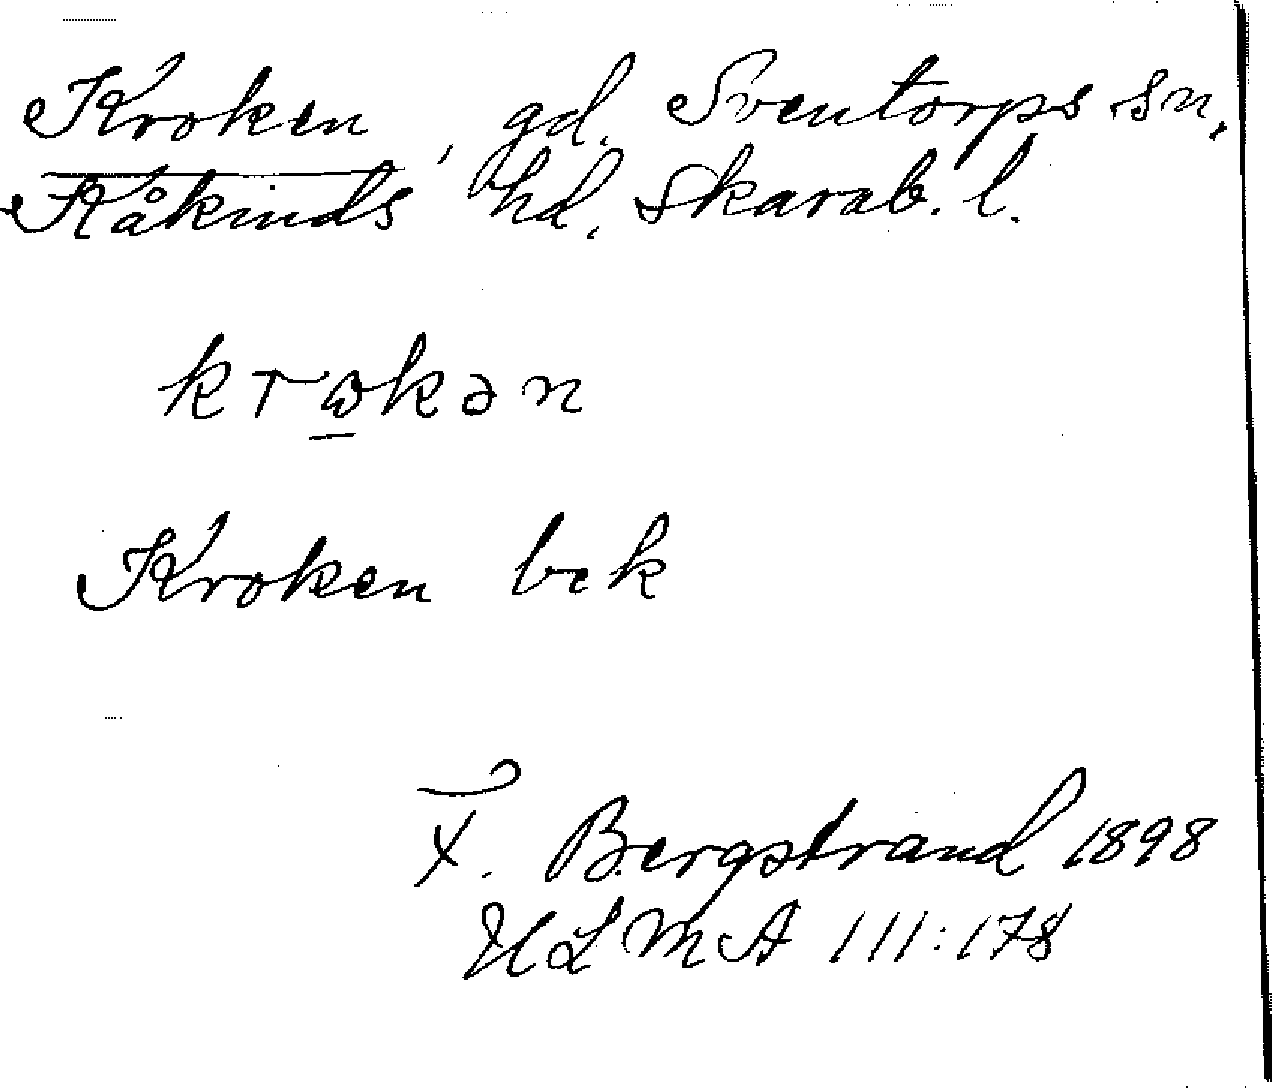 Kroken, gd. Sventorps sn,
Kåkinds hd. Skarab. l.
krωkən
Kroken bek
F. Bergstrand 1898
ULMA 111:178